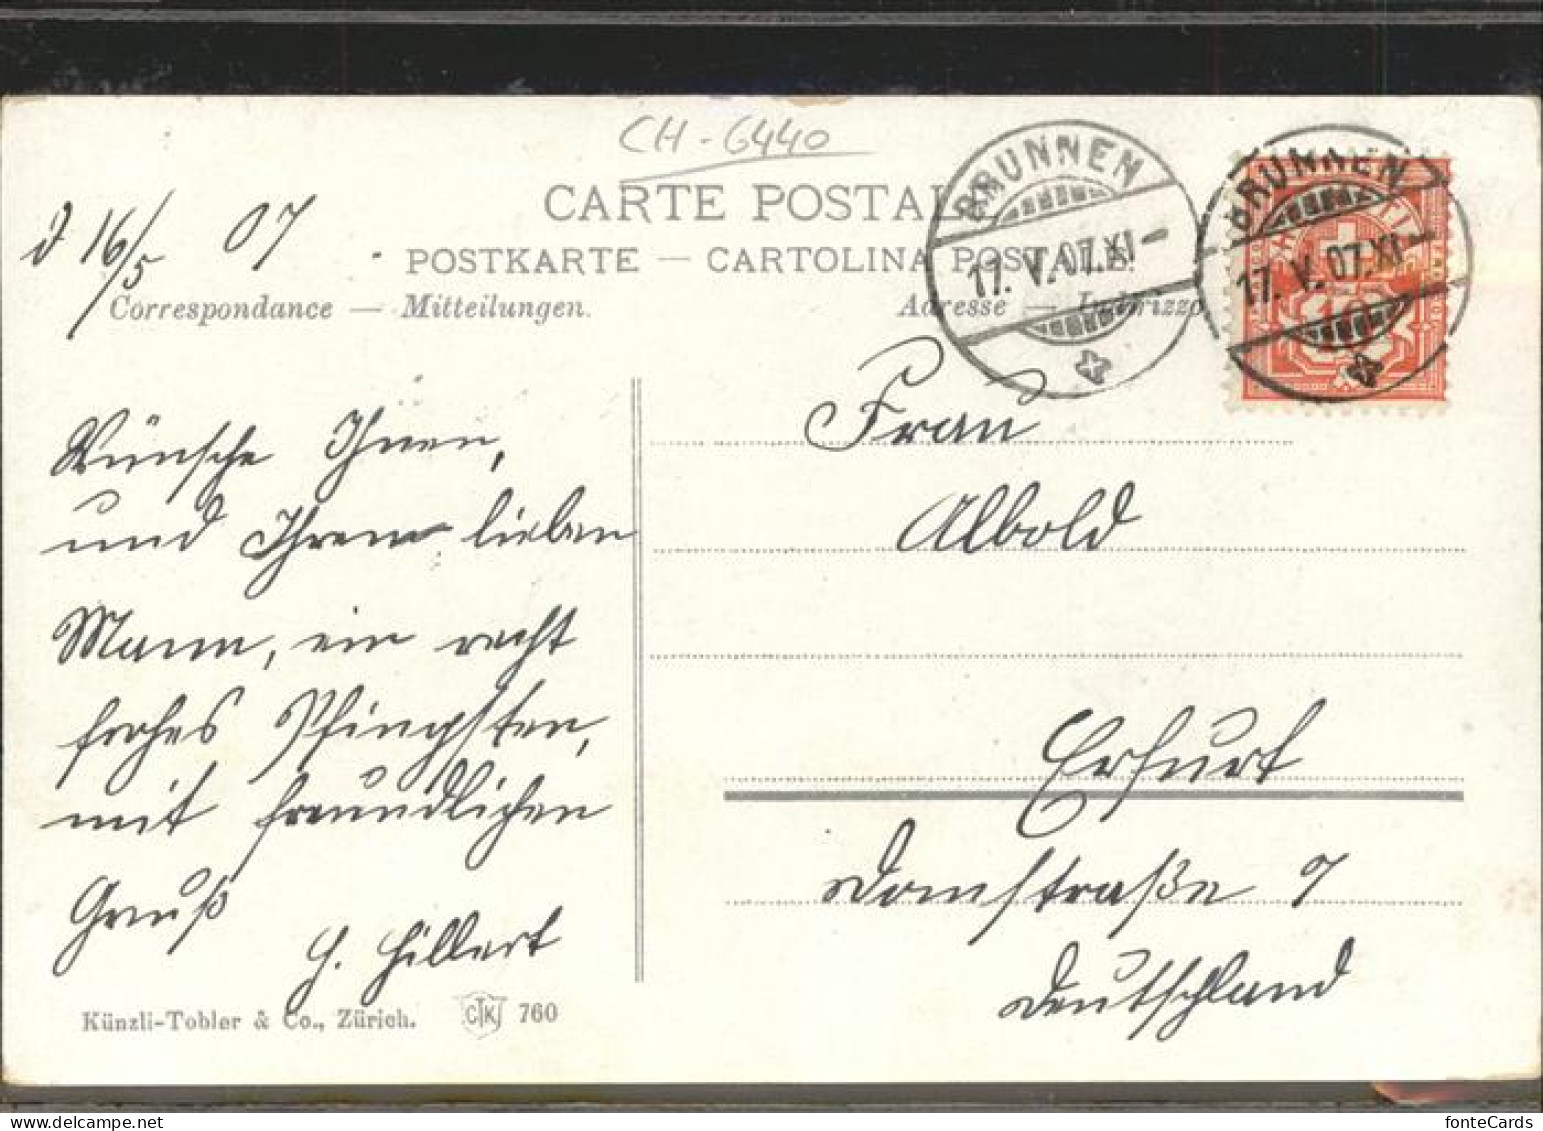 CH-6440
CARTE POSTALE
POSTKARTE — CARTOLINA POSTALE.
Correspondance — Mitteilungen.
Adresse — Indirizzo
BRUNNEN
17. V. 07. XI-
BRUNNEN
17. V. 07. XI-
10
d 16/5 07
Wünsche Ihnen,
und Ihrem lieben
Mann, ein recht
frohes Pfingsten,
mit freundlichen
Gruß
G. Hillert
Frau
Albold
Erfurt
Domstraße 7
Deutschland
Künzli-Tobler & Co., Zürich.
CTK 760
fonteCards